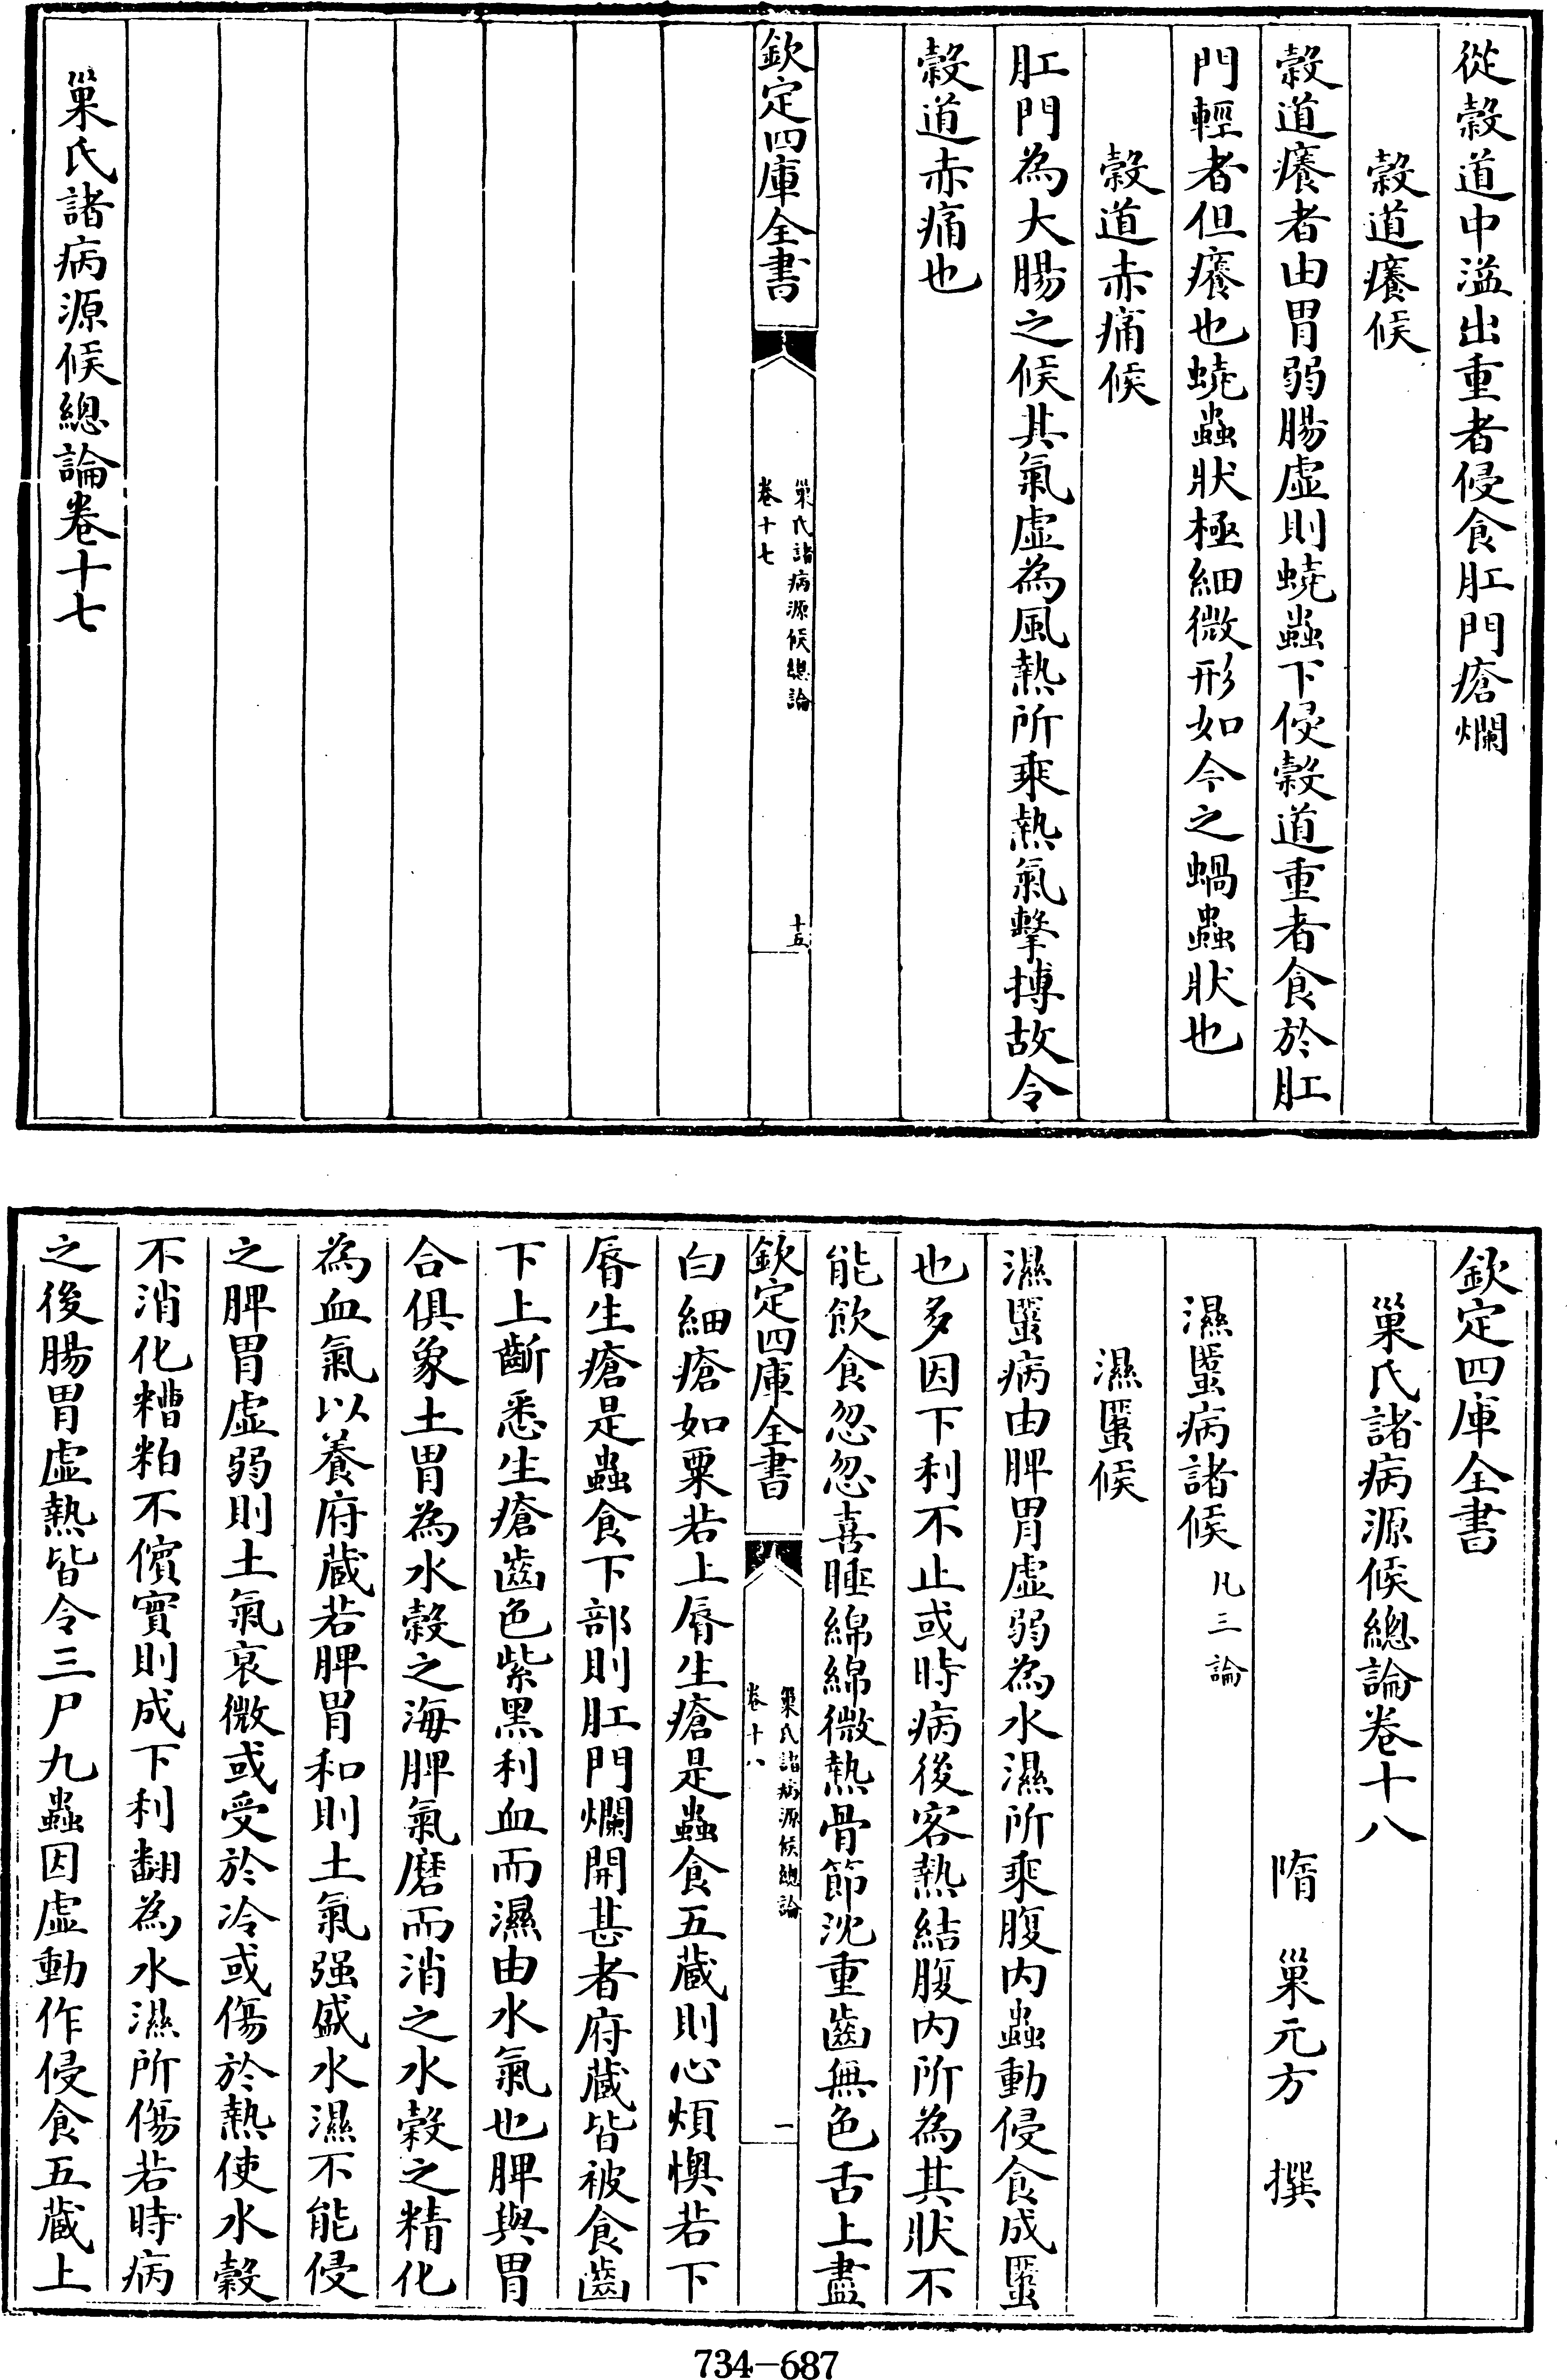 從穀道中溢出重者侵食肛門瘡爛
穀道癢候
穀道癢者由胃弱腸虛則蟯蟲下侵穀道重者食於肛
門輕者但癢也蟯蟲狀極細微形如今之蝸蟲狀也
穀道赤痛候
肛門為大腸之候其氣虛為風熱所乘熱氣擊搏故令
穀道赤痛也
欽定四庫全書
巢氏諸病源候總論
卷十七
十五
巢氏諸病源候總論卷十七
欽定四庫全書
巢氏諸病源候總論卷十八
隋 巢元方 撰
濕䘌病諸候 凡三論
濕䘌候
濕䘌病由脾胃虛弱為水濕所乘腹内蟲動侵食成䘌
也多因下利不止或時病後客熱結腹内所為其狀不
能飲食忽忽喜睡綿綿微熱骨節沈重齒無色舌上盡
欽定四庫全書
巢氏諸病源候總論
卷十八
一
白細瘡如粟若上脣生瘡是蟲食五蔵則心煩懊若下
脣生瘡是蟲食下部則肛門爛開甚者府蔵皆被食齒
下上齗悉生瘡齒色紫黑利血而濕由水氣也脾與胃
合俱象土胃為水穀之海脾氣磨而消之水穀之精化
為血氣以養府蔵若脾胃和則土氣强盛水濕不能侵
之脾胃虛弱則土氣衰微或受於冷或傷於熱使水穀
不消化糟粕不儐實則成下利翻為水濕所傷若時病
之後腸胃虛熱皆令三尸九蟲因虛動作侵食五蔵上
734-687